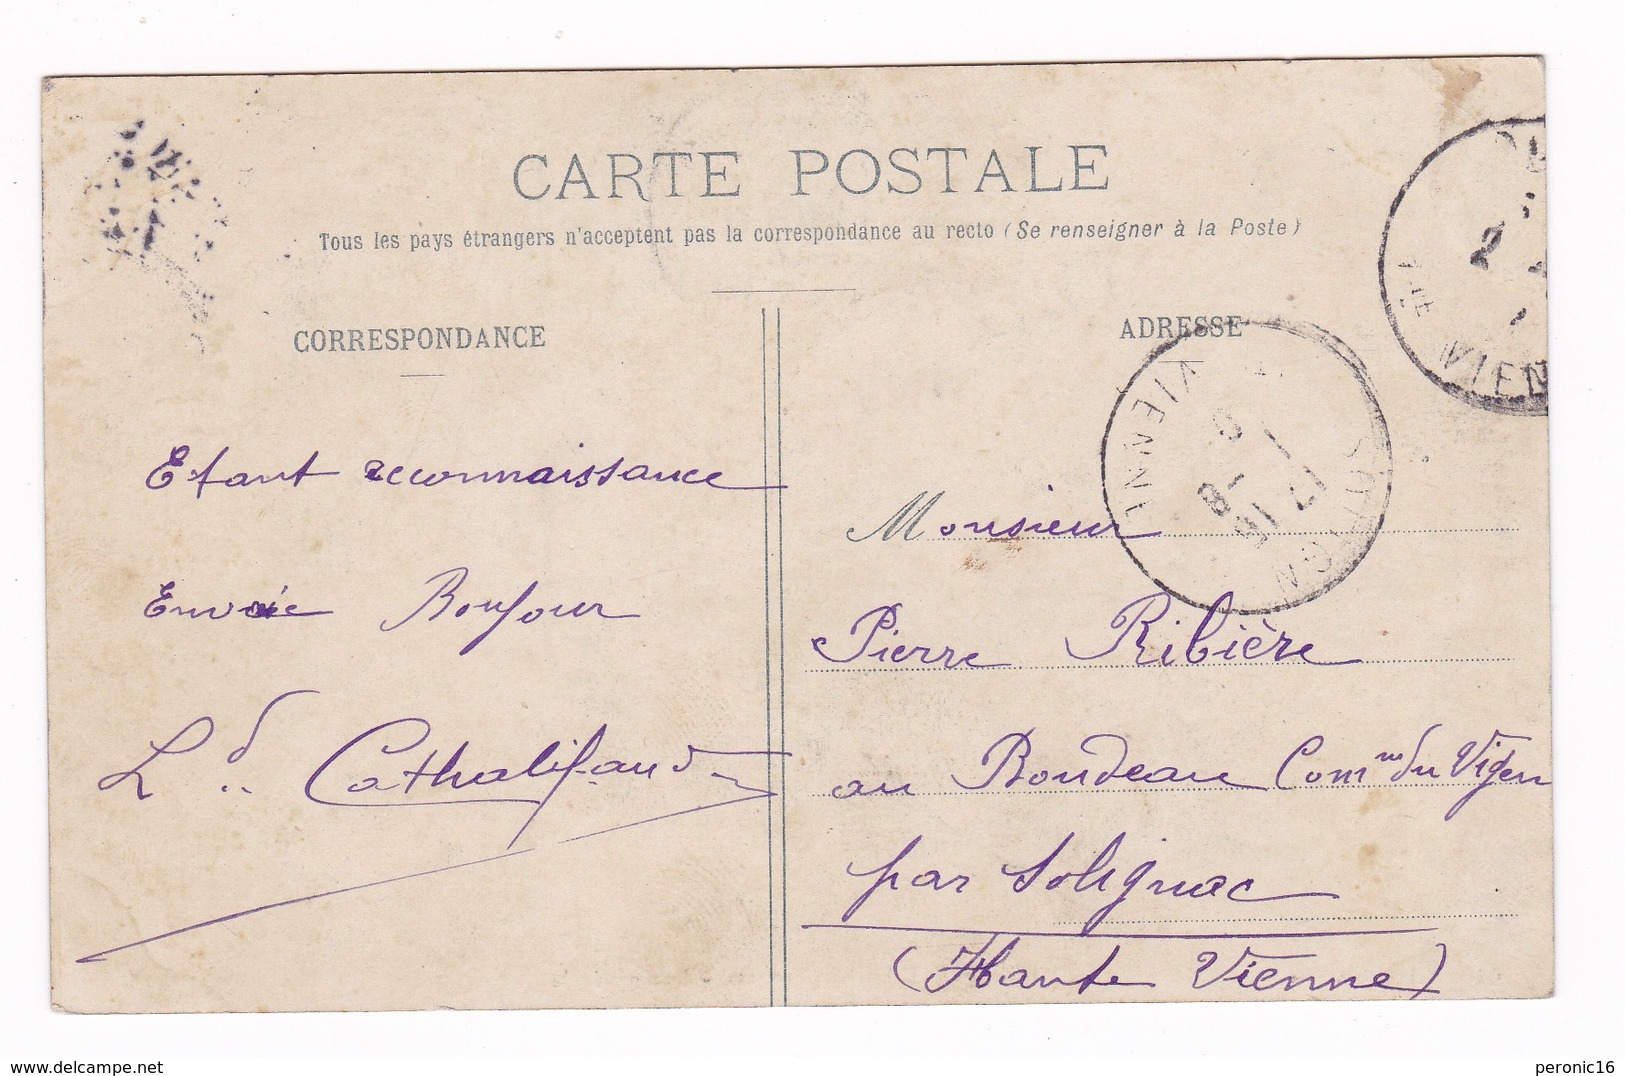 CARTE POSTALE
Tous les pays étrangers n'acceptent pas la correspondance au recto (Se renseigner à la Poste)
CORRESPONDANCE
ADRESSE
Etant reconnaissance
Envoie Bonjour
L.d Cathalifaud
Monsieur
Pierre Ribière
au Boudeau Comne du Vigen
par Solignac
(Haute Vienne)
VIENNE
17 15
VIEN
peronic16